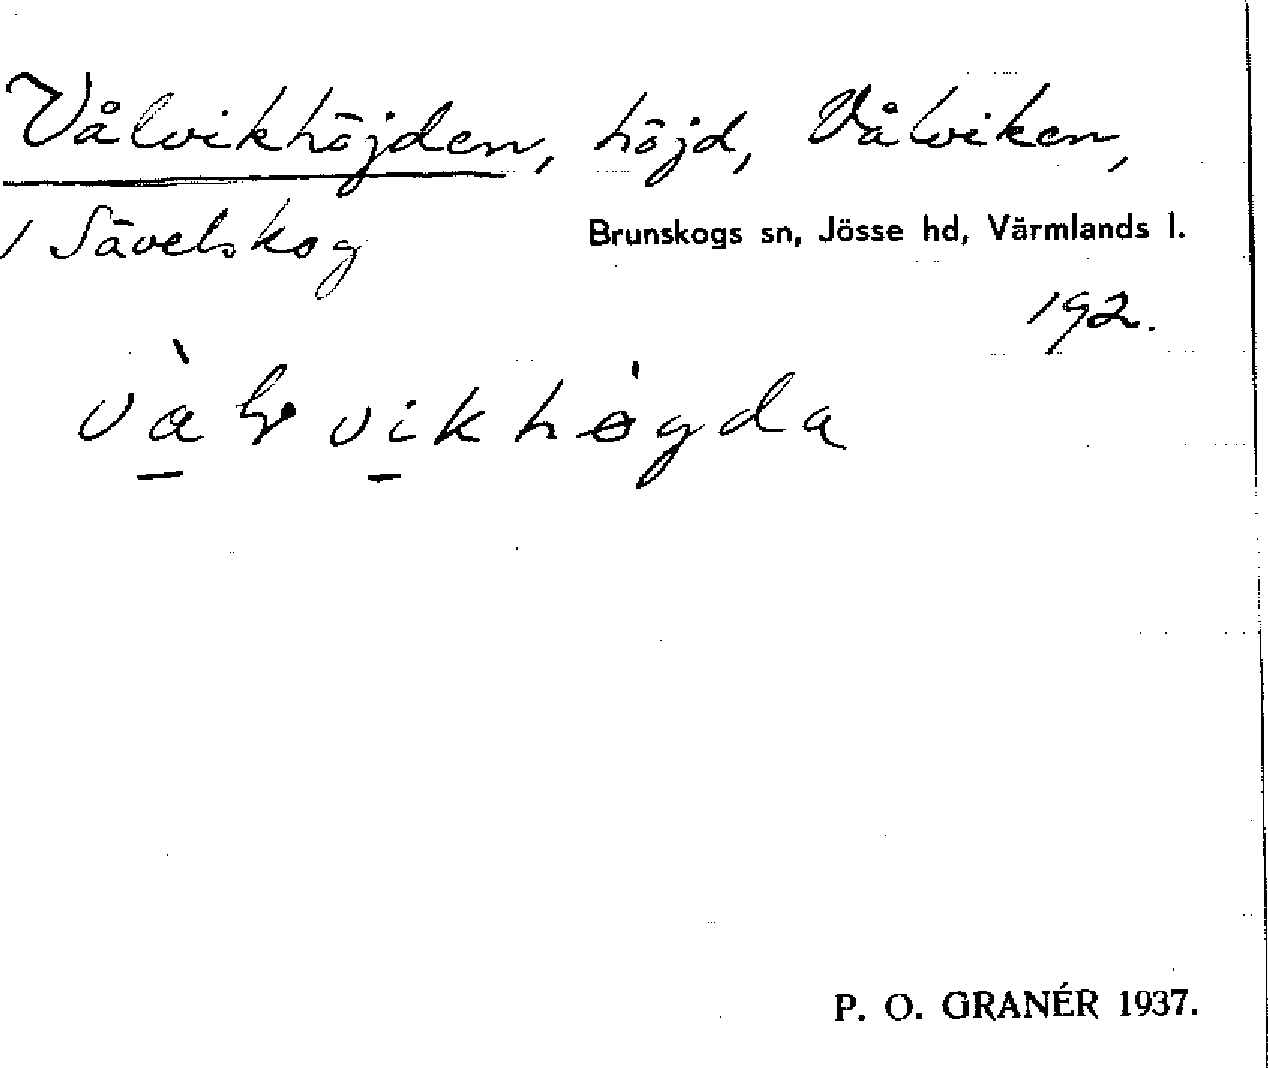 Vålvikhöjden, höjd, Vålviken,
/ Sävelskog
Brunskogs sn, Jösse hd, Värmlands l.
192.
P. O. GRANÉR 1937.